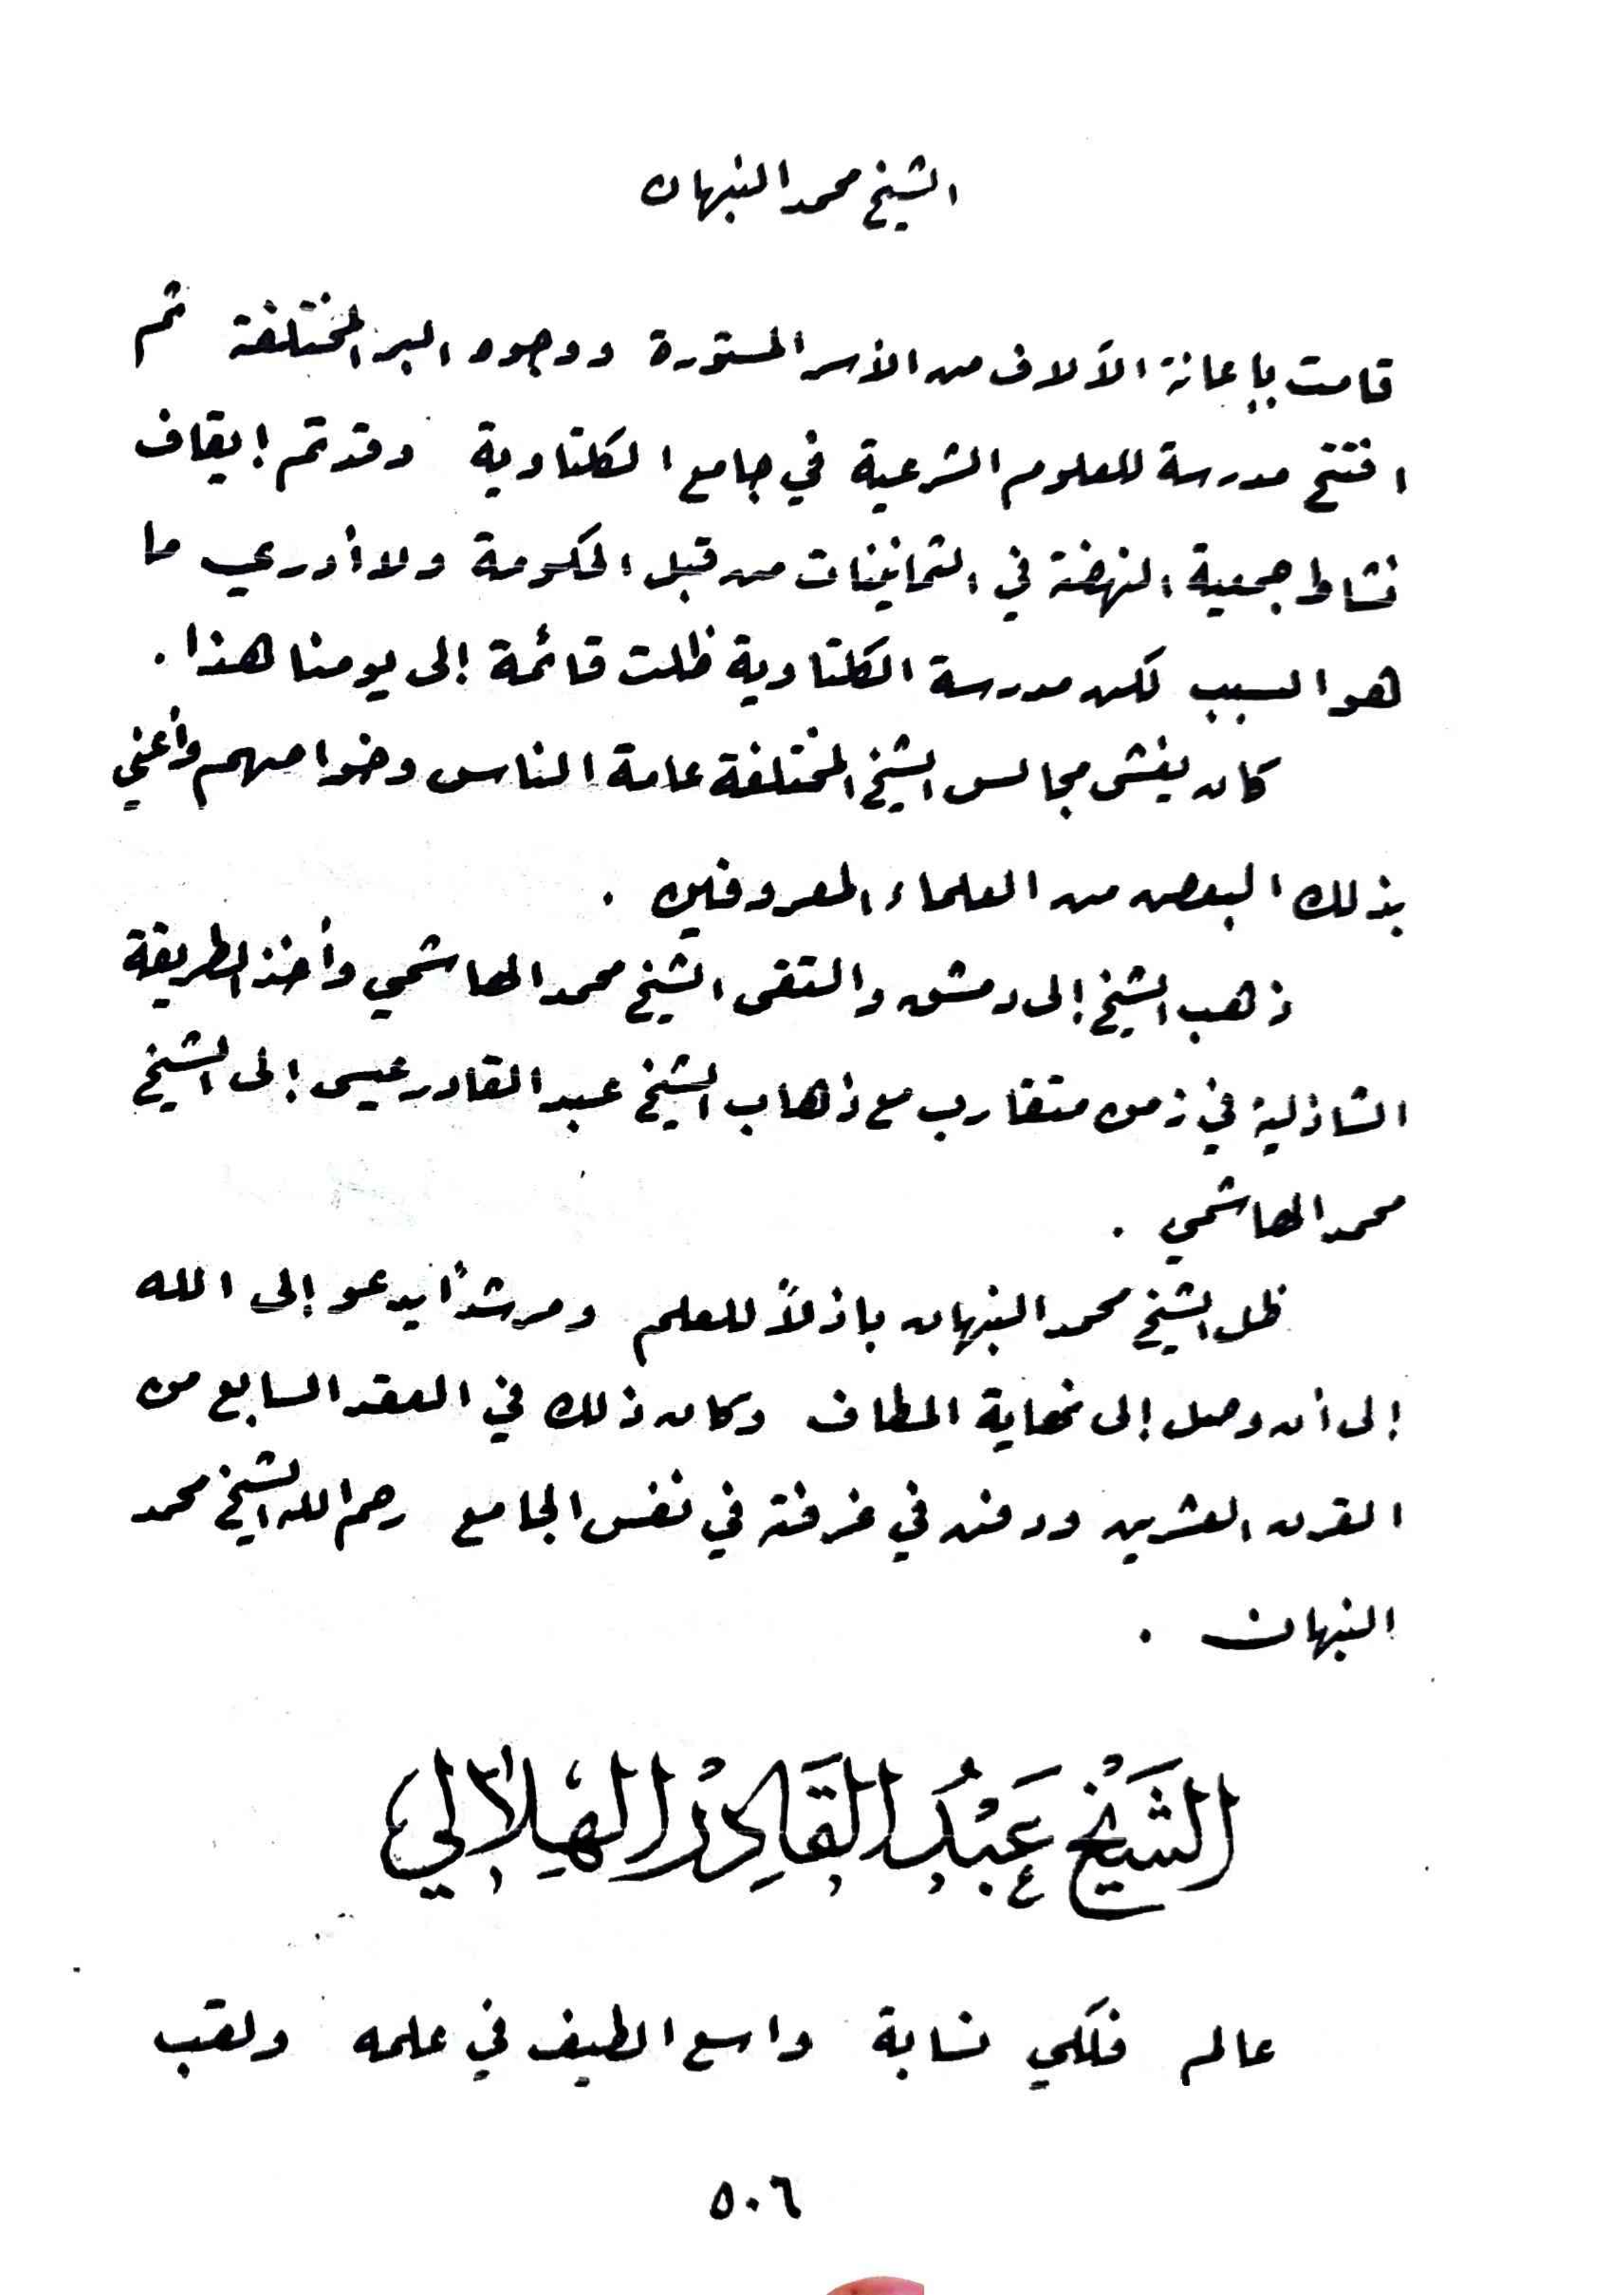 الشيخ محمد النبهان
قامت بإعانة الآلاف من الأسر المستورة ووجوه البر المختلفة ثم
افتتح مدرسة للعلوم الشرعية في جامع الكلتاوية وقد تم إيقاف
نشاط جمعية النهضة في الثمانينات من قبل الحكومة ولا أدري ما
هو السبب لكن مدرسة الكلتاوية ظلت قائمة إلى يومنا هذا .
كان يغشى مجالس الشيخ المختلفة عامة الناس وخواصهم وأعني
بذلك البعض من العلماء المعروفين .
ذهب الشيخ إلى دمشق والتقى الشيخ محمد الهاشمي وأخذ الطريقة
الشاذلية في زمن متقارب مع ذهاب الشيخ عبد القادر عيسى إلى الشيخ
محمد الهاشمي .
ظل الشيخ محمد النبهان باذلاً للعلم ومرشداً يدعو إلى الله
إلى أن وصل إلى نهاية المطاف وكان ذلك في العقد السابع من
القرن العشرين ودفن في غرفة في نفس الجامع رحم الله الشيخ محمد
النبهان .
الشَيْخ عَبْدُ القَادِرْ الهِلَالي
عالم فلكي نسابة واسع الطيف في علمه ولقب
٥٠٦